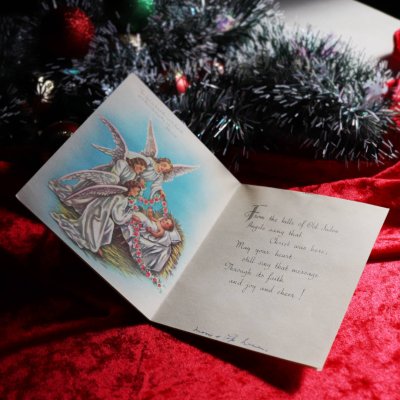 From the hills of Old Judea
Angels sing that
Christ was born;
May your heart
still sing that message
Through its faith
and joy and cheer!